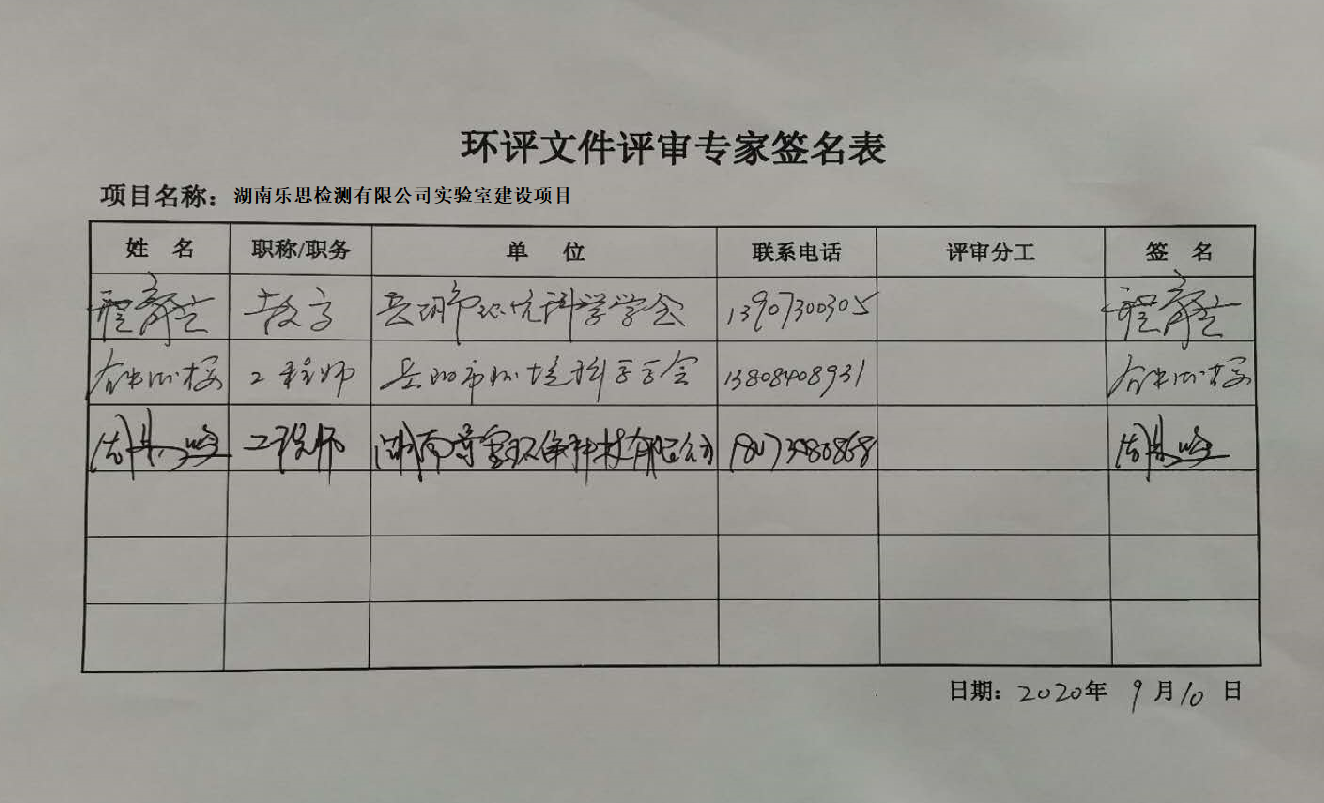 环评文件评审专家签名表
项目名称：湖南乐思检测有限公司实验室建设项目
姓 名 职称/职务 单 位 联系电话 评审分工 签 名
教高 岳阳市环境科学学会 13907300305
工程师 岳阳市环境科学学会 13808408931
周 工程师 湖南 环保科技有限公司 周
日期：2020年 9月10 日